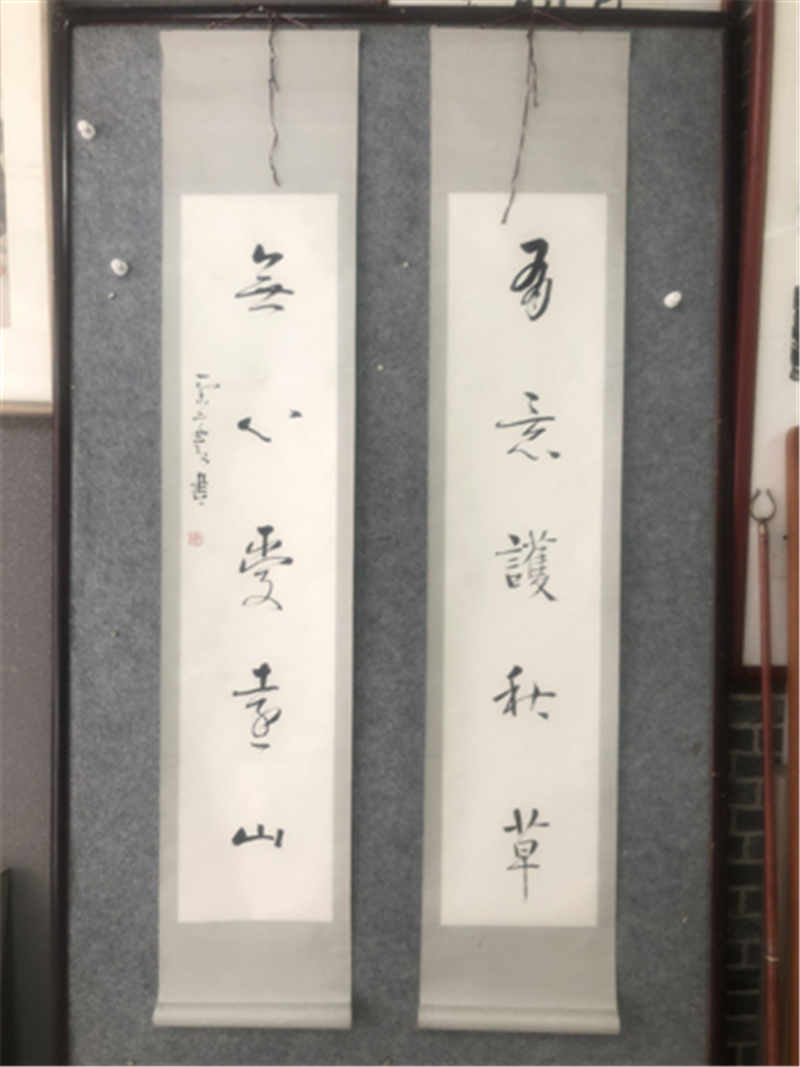 有意護秋草
無心愛遠山
書